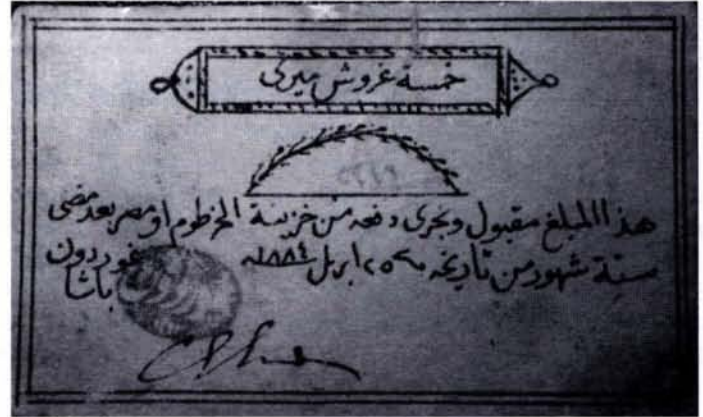 خمسة غروش ميرى
هذا المبلغ مقبول ويجرى دفعه من خزينة الخرطوم او مصر بعد مضى
ستة شهور من تاريخه ٢٥ ابريل ١٨٨٤
غوردون
باشا